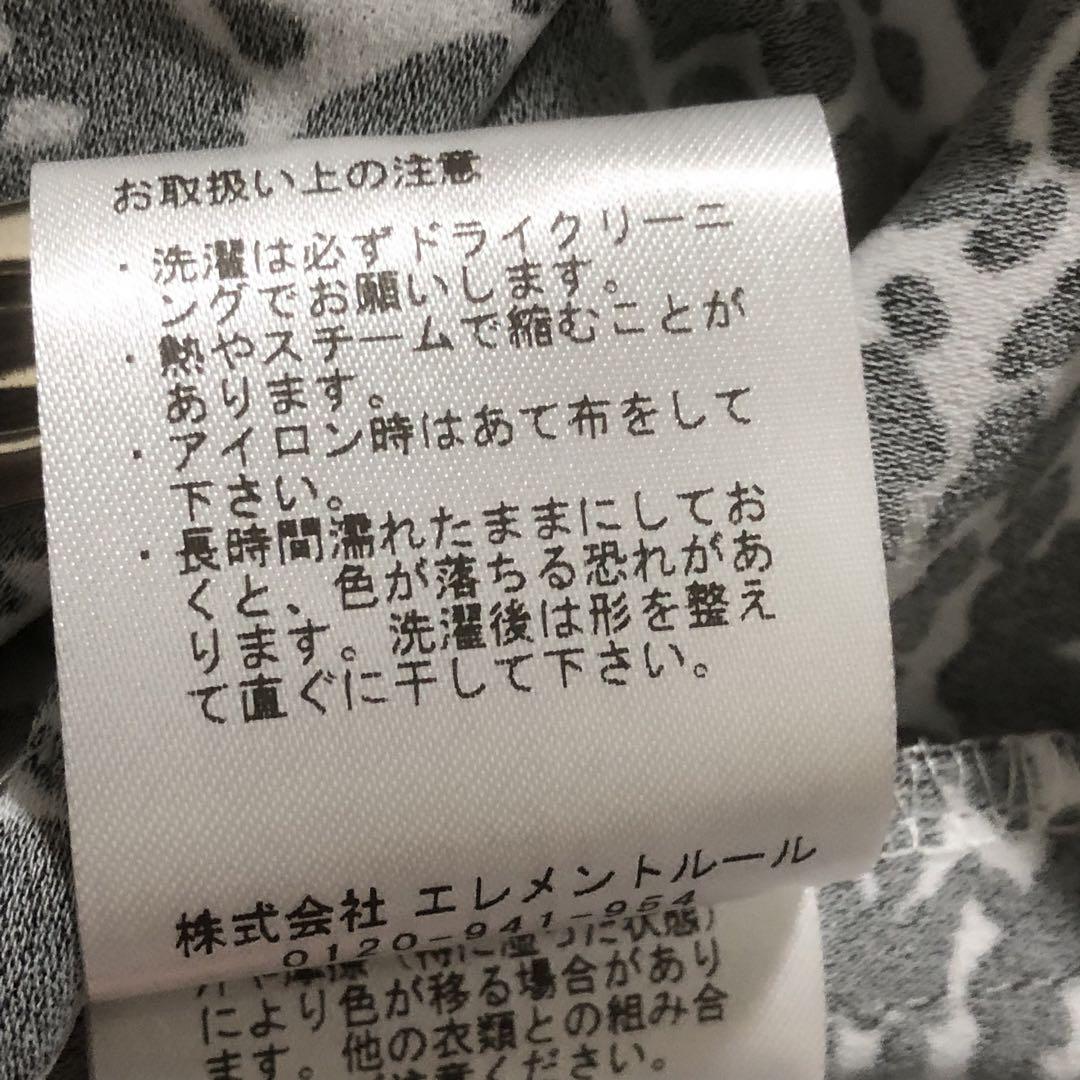 お取扱い上の注意
・洗濯は必ずドライクリーニ
ングでお願いします。
・熱やスチームで縮むことが
あります。
・アイロン時はあて布をして
下さい。
・長時間濡れたままにしてお
くと、色が落ちる恐れがあ
ります。洗濯後は形を整え
て直ぐに干して下さい。
株式会社 エレメントルール
0120-941-954
により色が移る場合があり
ます。他の衣類との組み合
ください。